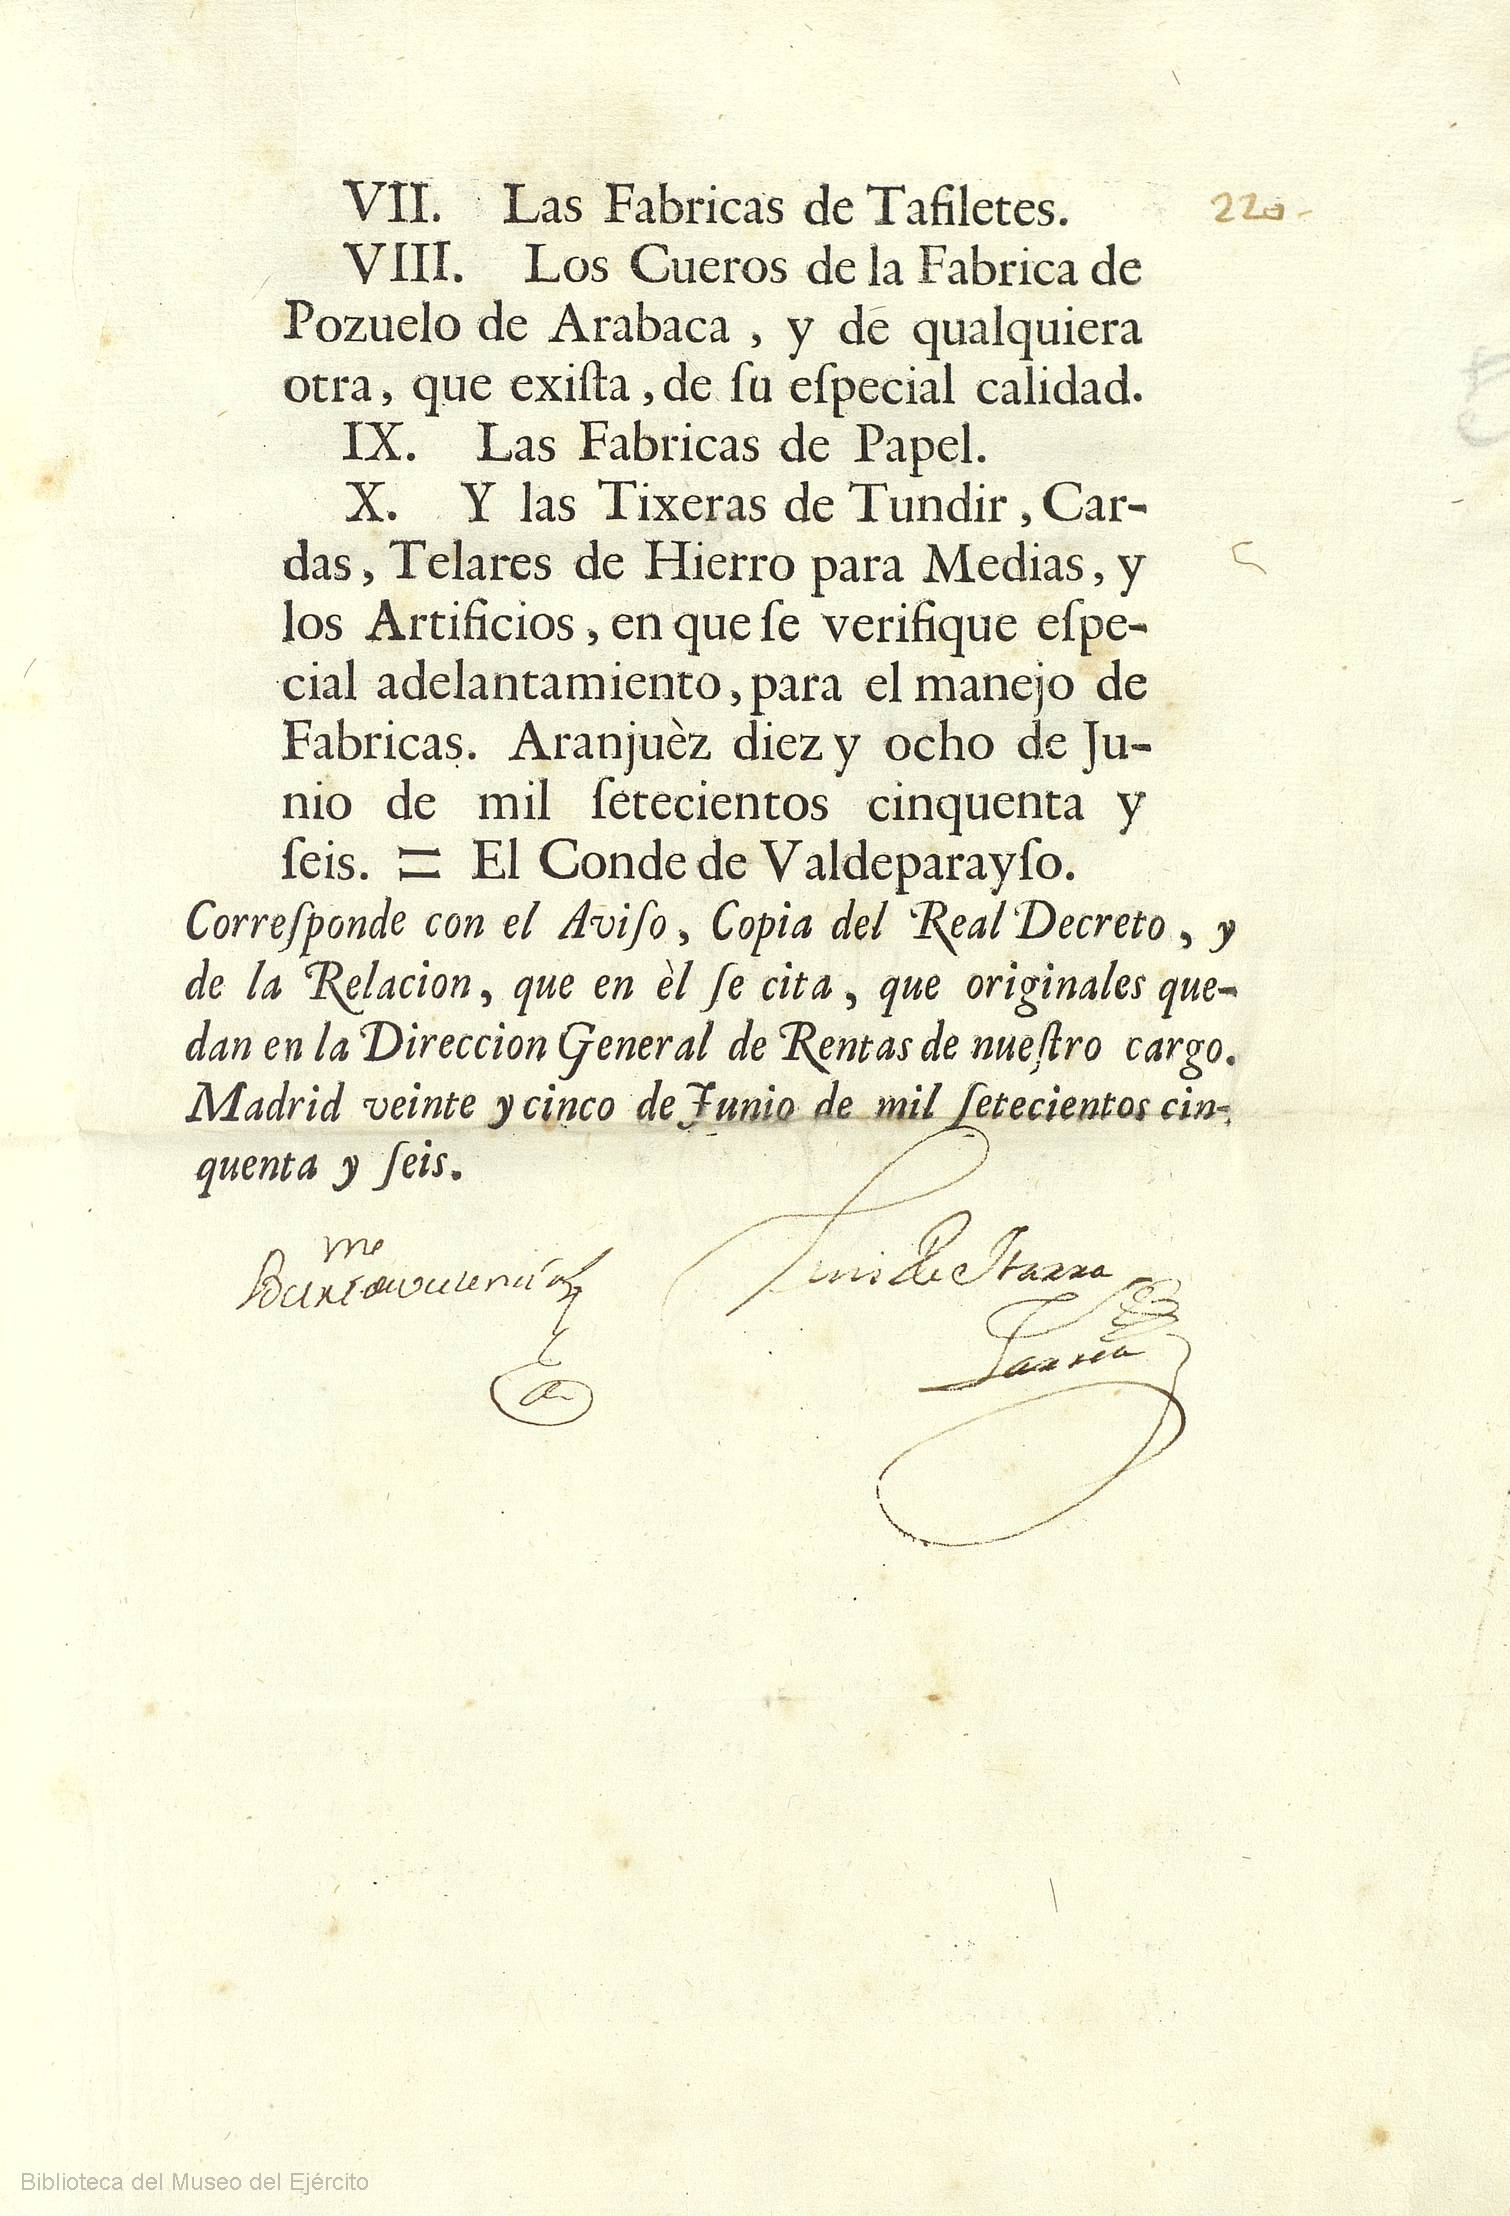 VII. Las Fabricas de Tafiletes.
220-
VIII. Los Cueros de la Fabrica de
Pozuelo de Arabaca, y de qualquiera
otra, que exiſta, de ſu eſpecial calidad.
IX. Las Fabricas de Papel.
X. Y las Tixeras de Tundir, Car-
das, Telares de Hierro para Medias, y
los Artificios, en que ſe verifique eſpe-
cial adelantamiento, para el manejo de
Fabricas. Aranjuèz diez y ocho de Ju-
nio de mil ſetecientos cinquenta y
ſeis. = El Conde de Valdeparayſo.
Correſponde con el Aviſo, Copia del Real Decreto, y
de la Relacion, que en èl ſe cita, que originales que-
dan en la Direccion General de Rentas de nueſtro cargo.
Madrid veinte y cinco de Junio de mil ſetecientos cin-
quenta y ſeis.
Luis de Ibarra
Larrea
Biblioteca del Museo del Ejército